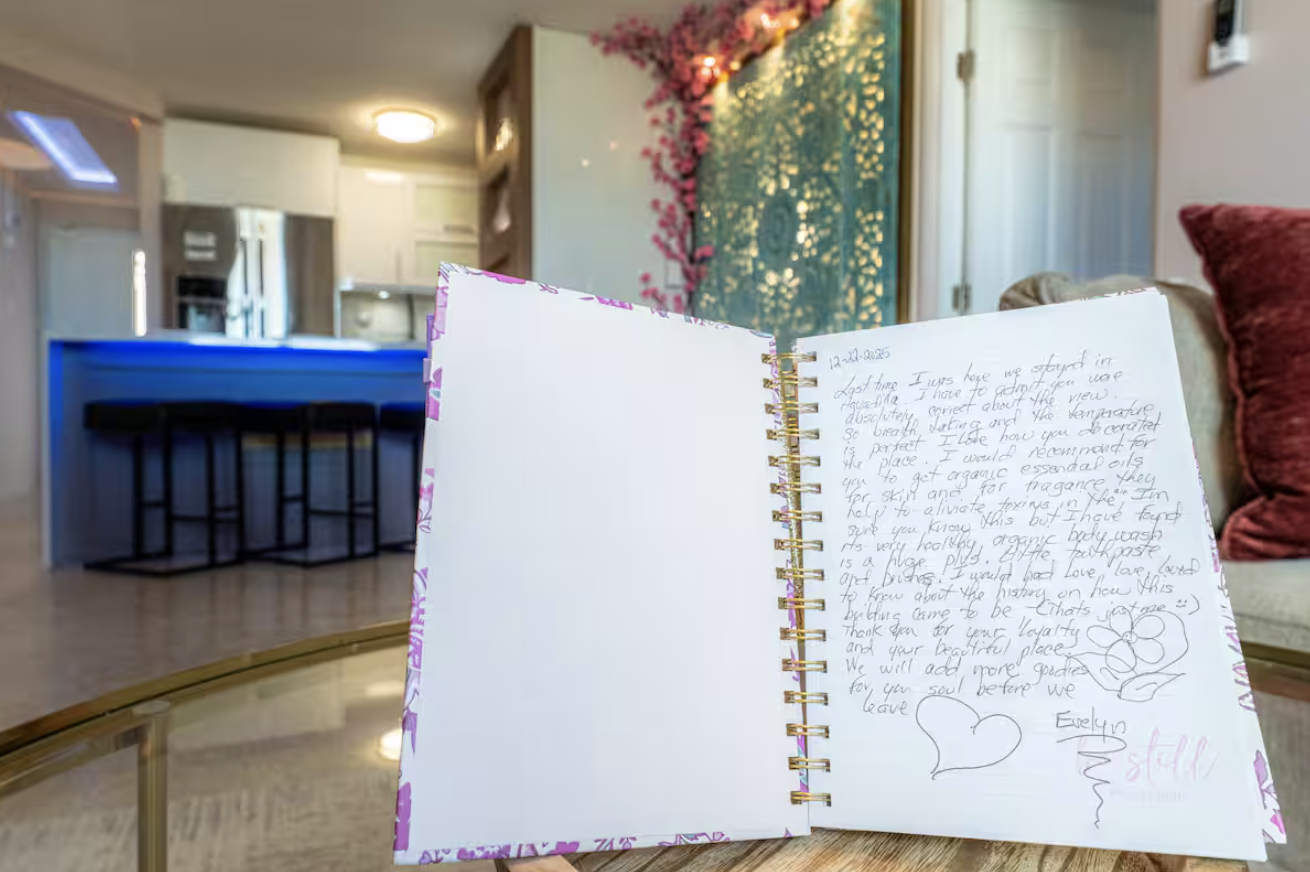 12-22-2025
Last time I was here we stayed in
I have to admit you were
absolutely correct about the view.
So breath taking and the temperature
is perfect. I love how you decorated
the place. I would recommend for
you to get organic essential oils
for skin and for fragance they
help to aliviate toxins in the air Im
sure you know this but I have found
it's very healthy organic body wash
is a huge plus. Little toothpaste
and brushes. I would had Love, love, loved
to know about the history on how this
building came to be - (thats just me :))
Thank you for your loyalty
and your beautiful place.
We will add more goodies
for you soul before we
leave
Evelyn